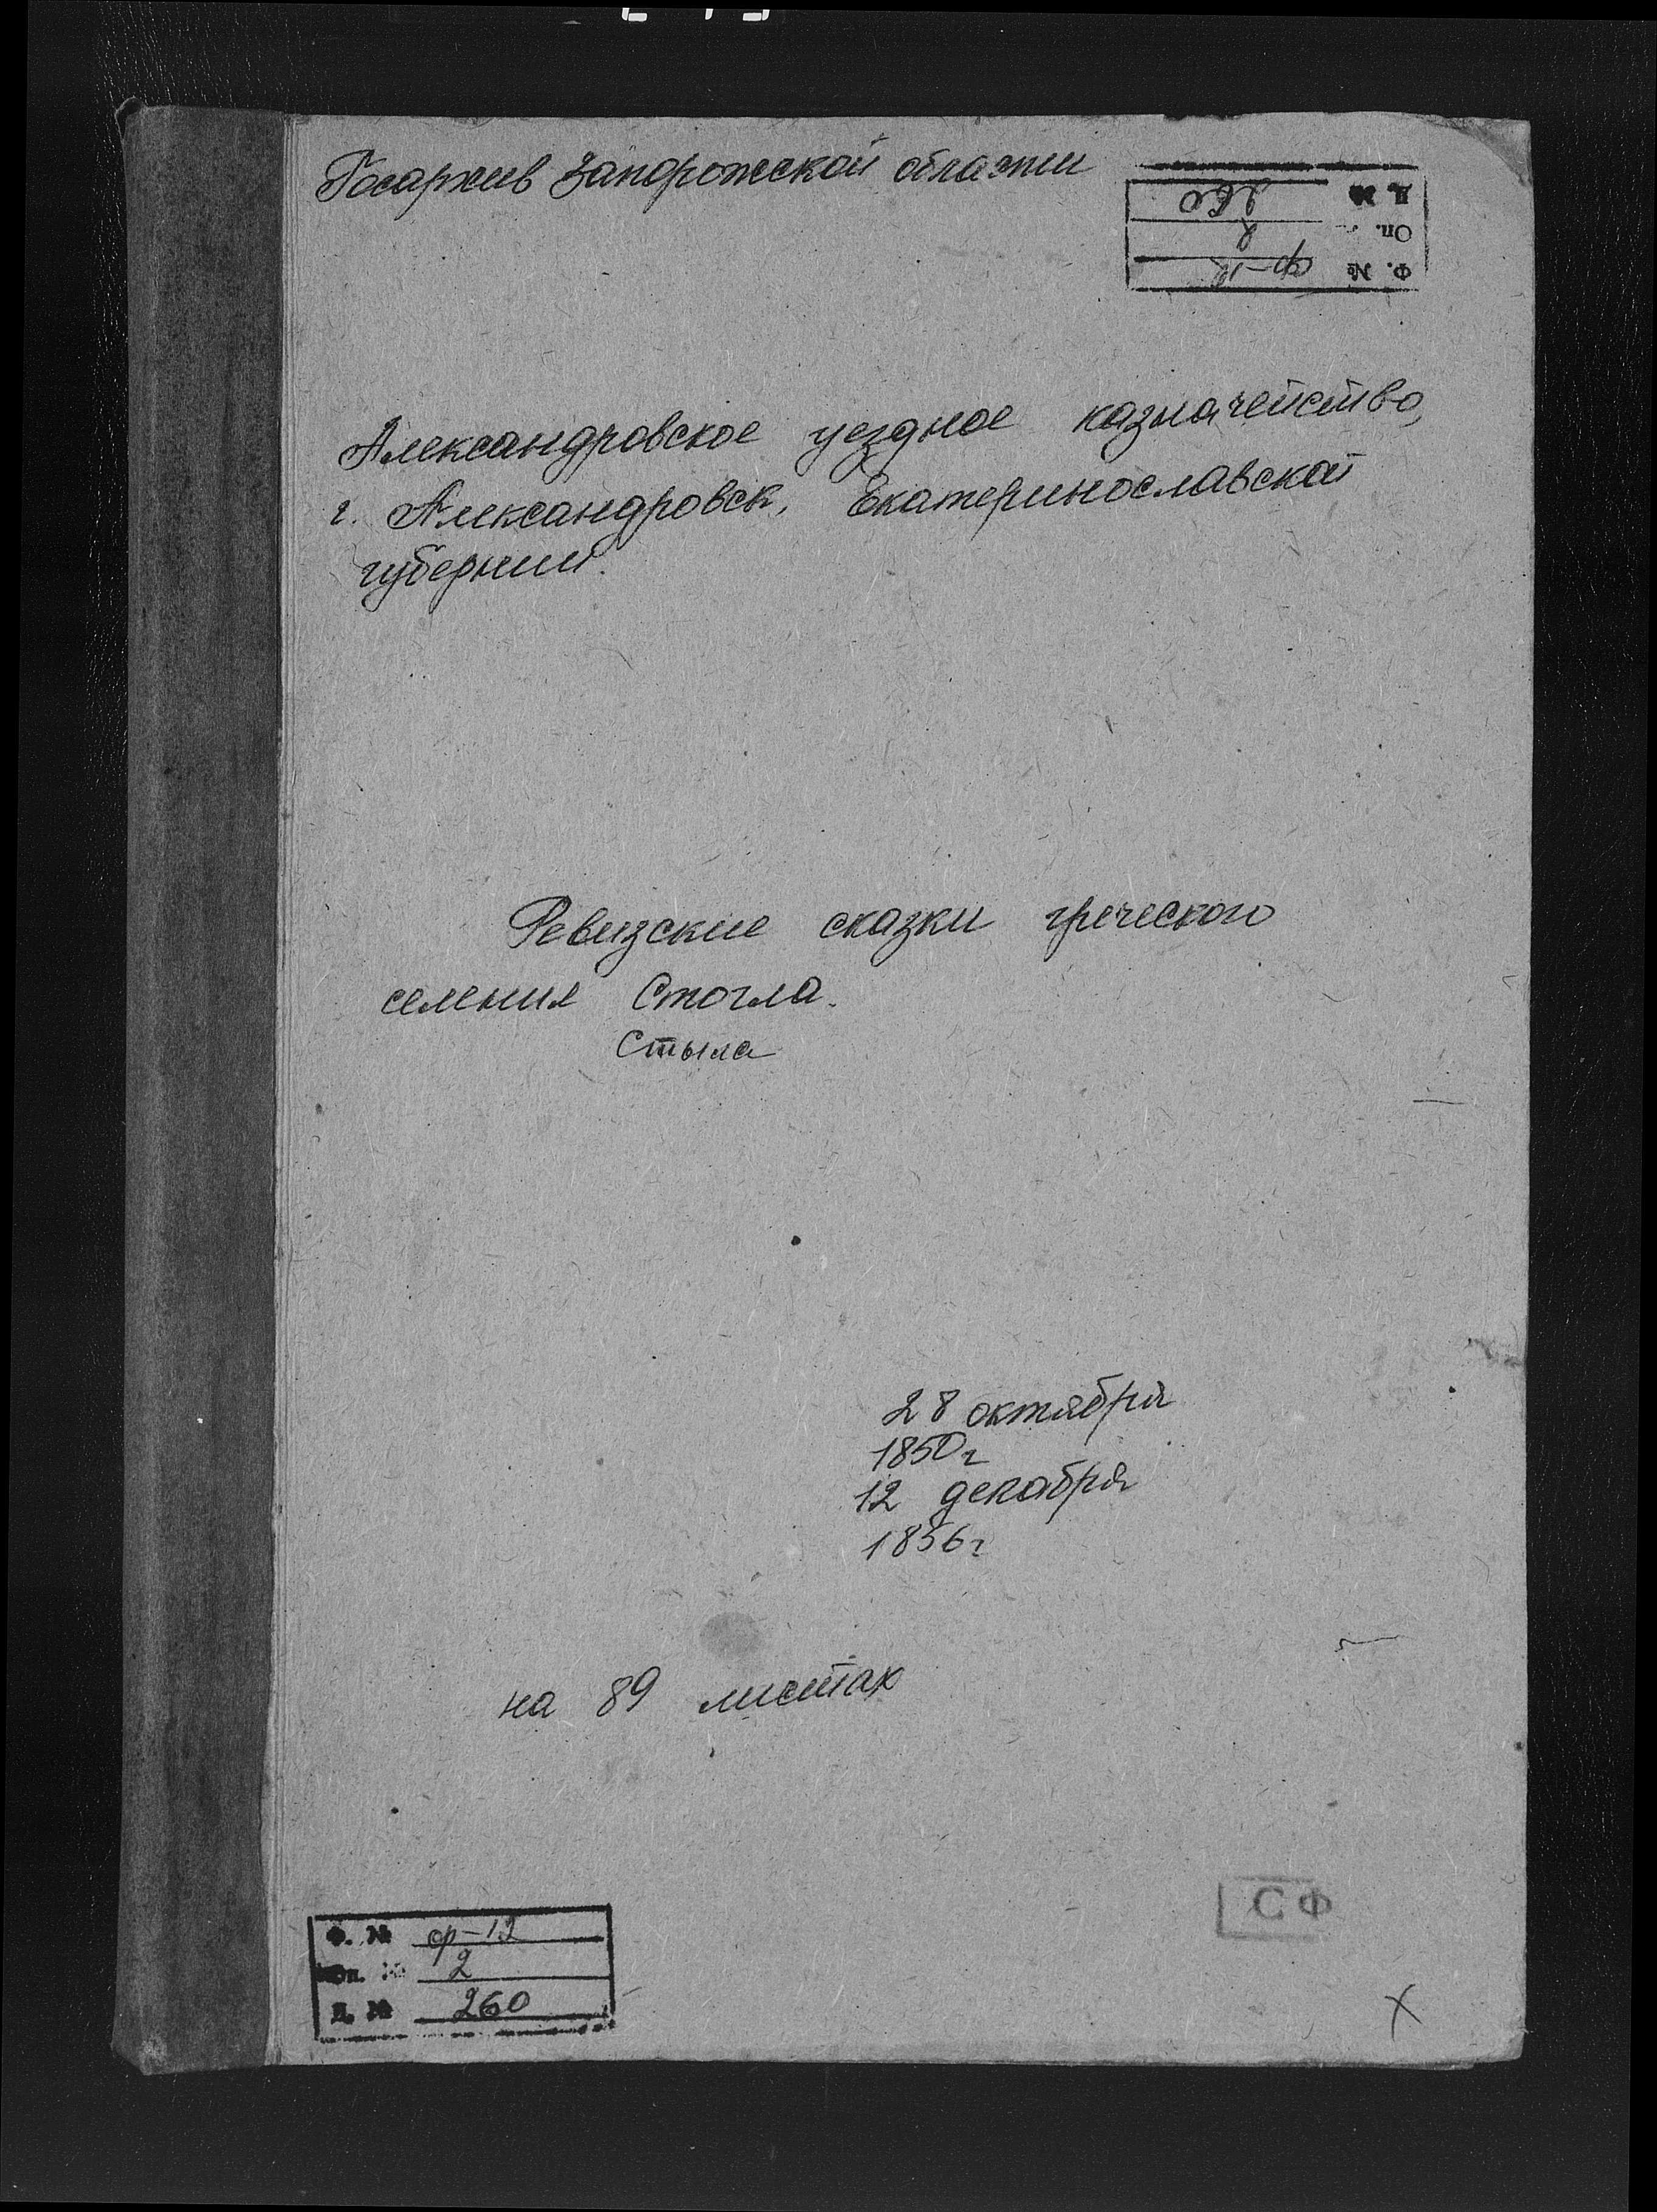 Госархив Запорожской области
Д. № 260
Оп. 2
Ф. № ф-12
Александровское уездное казначейство,
г. Александровск, Екатеринославской
губернии.
Ревизские сказки греческого
селения Стогла.
Стыла
28 октября
1850г
12 декабря
1856г
на 89 листах
СФ
Ф. № ф-12
Оп. № 2
Д. № 260
Х